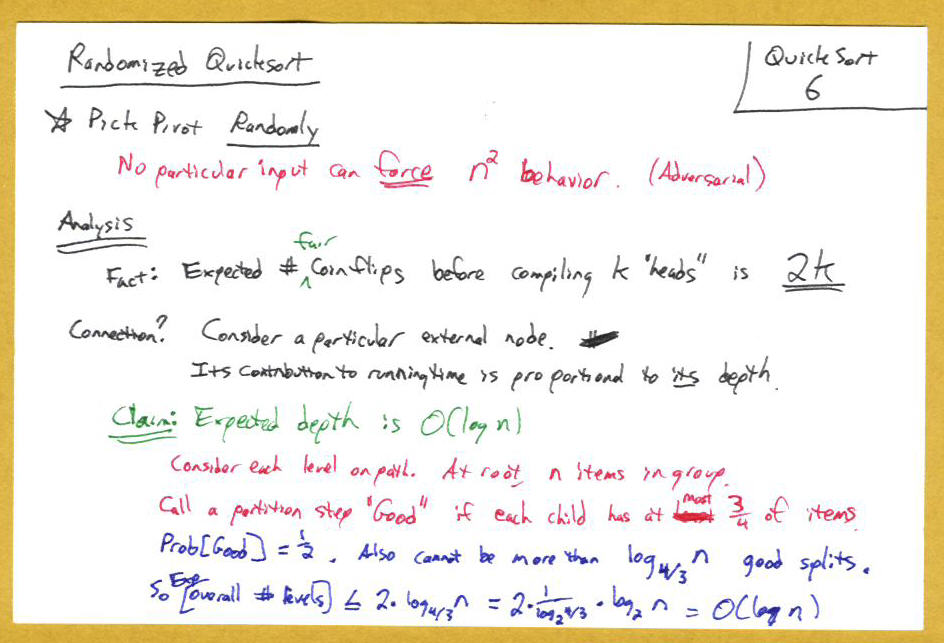 Randomized Quicksort
QuickSort
6
☆ Pick Pivot Randomly
No particular input can force n² behavior. (Adversarial)
Analysis
Fact: Expected # fair Coinflips before compiling k "heads" is 2k
Connection? Consider a particular external node.
Its contribution to running time is proportional to its depth.
Claim: Expected depth is O(log n)
Consider each level on path. At root, n items in group.
Call a partition step "Good" if each child has at most 3/4 of items
Prob[Good] = 1/2. Also cannot be more than log_{4/3} n good splits.
So Exp[overall # levels] ≤ 2·log_{4/3} n = 2·1/log₂ 4/3 · log₂ n = O(log n)